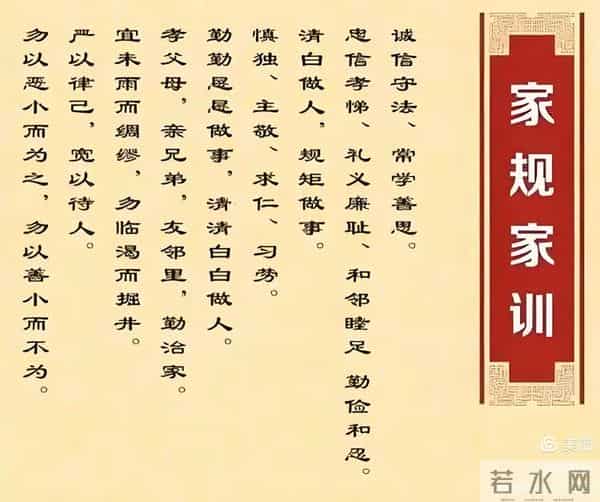 家规家训
诚信守法、常学善思。
忠信孝悌、礼义廉耻、和邻睦足 勤俭和忍。
清白做人，规矩做事。
慎独、主敬、求仁、习劳。
勤勤恳恳做事，清清白白做人。
孝父母，亲兄弟，友邻里，勤治家。
宜未雨而绸缪，勿临渴而掘井。
严以律己，宽以待人。
勿以恶小而为之，勿以善小而不为。
若水网